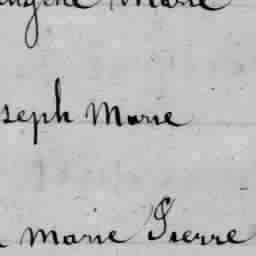 Marie
seph Marie
Marie Pierre